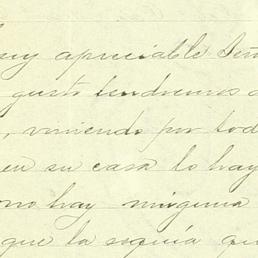 muy apreciable Señ
gusto tendremos
, viniendo por tod
en su casa lo hay
no hay ninguna
que la sequía qu